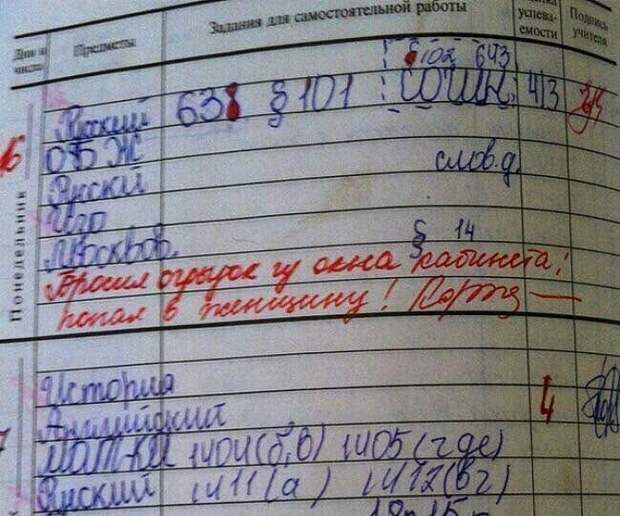 Дни и числа
Предметы
Задания для самостоятельной работы
успева-
емости
Подпись
учителя
§102 643
Русский 638 §101 СОЧИН. 4/3
ОБЖ
Русский слов.д.
Изо
Москвов. § 14
Бросил огрызок из окна кабинета!
попал в женщину!
Понедельник
16
История
Английский 4
7
МАТ-КА 1404(б,в) 1405(где)
Русский 1411(а) 1412(вг)